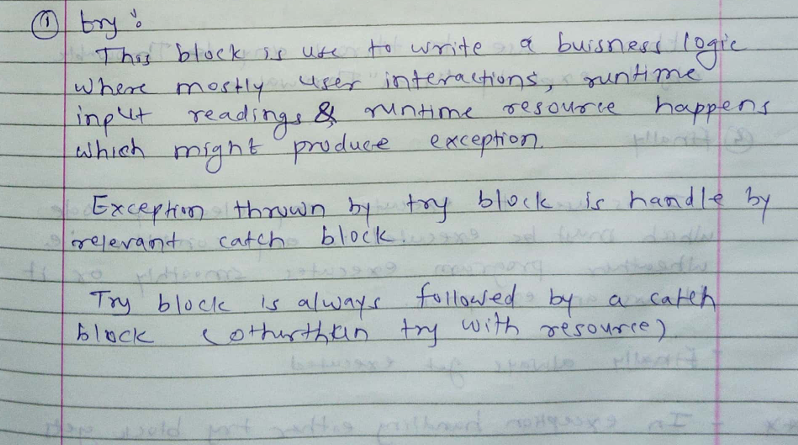 ① try :
This block is use to write a buisness logic
where mostly user interactions, runtime
input readings & runtime resource happens
which might produce exception.
Exception thrown by try block is handle by
relevant catch block.
Try block is always followed by a catch
block (otherthan try with resource)